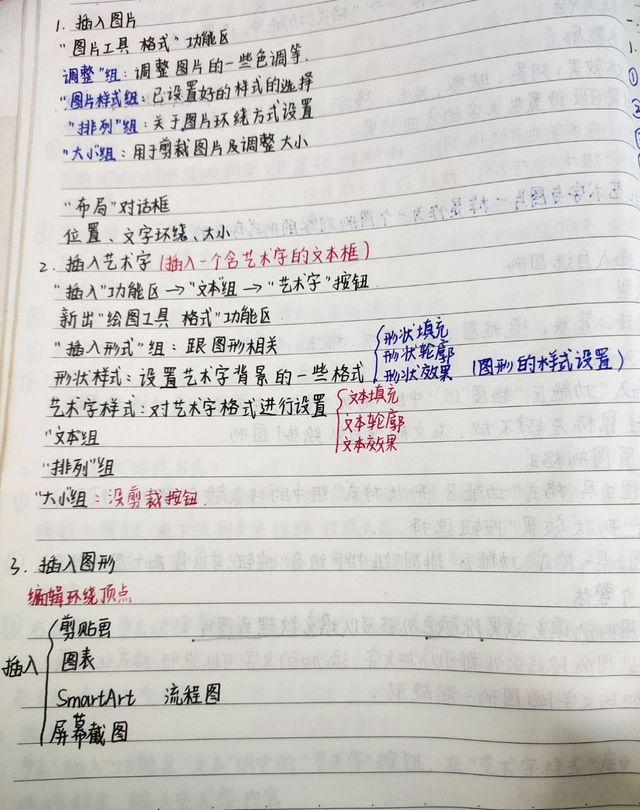 1. 插入图片
"图片工具 格式"功能区
调整"组：调整图片的一些色调等.
"图片样式组：已设置好的样式的选择
"排列"组：关于图片环绕方式设置
"大小组：用于剪裁图片及调整大小
"布局"对话框
位置、文字环绕、大小
2. 插入艺术字（插入一个含艺术字的文本框）
"插入"功能区→"文本"组→"艺术字"按钮
新出"绘图工具 格式"功能区
"插入形式"组：跟图形相关
形状样式：设置艺术字背景的一些格式
形状填充
形状轮廓
形状效果
（图形的样式设置）
艺术字样式：对艺术字格式进行设置
文本填充
文本轮廓
文本效果
"文本"组
"排列"组
"大小"组：没剪裁按钮.
3. 插入图形
编辑环绕顶点
插入
剪贴画
图表
SmartArt 流程图
屏幕截图